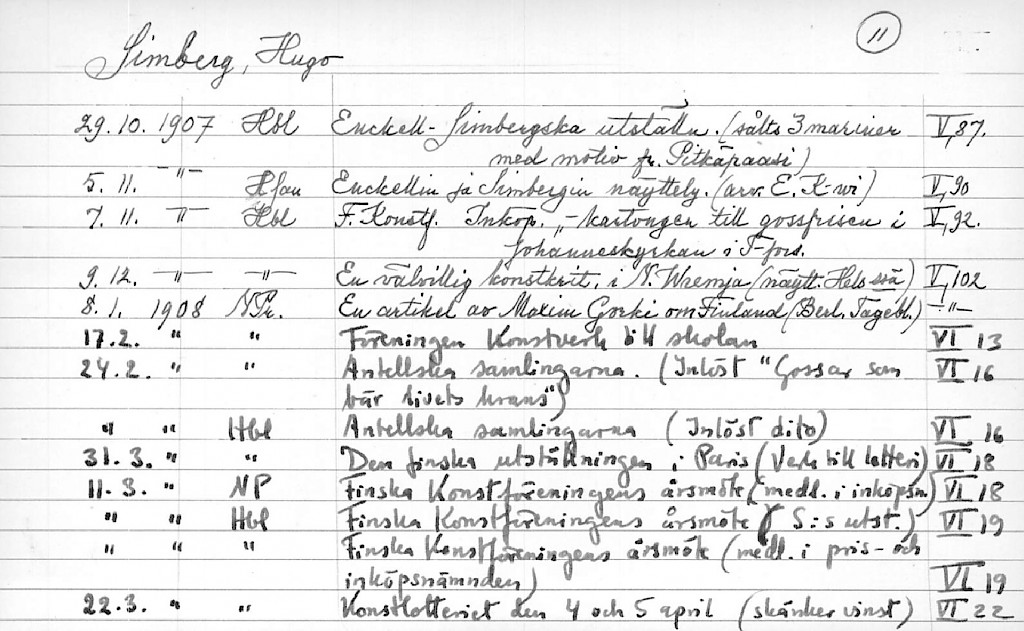 11
Simberg, Hugo
29.10. 1907 Hbl Enckell-Simbergska utställn. (sålts 3 mariner V,87.
med motiv fr. Pitkäpaasi)
5. 11. -"- Hfan Enckellin ja Simbergin näyttely. (arv. E. K-wi) V,90
7. 11. -"- Hbl F. Konstf. Inköp. „- kartongen till gossfrisen i V,92.
Johanneskyrkan i T-fors.
9. 12. -"- -"- En välvillig konstkrit. i N. Wremja (näytt. Hels:ssä) V,102
8. 1. 1908 N.Pr. En artikel av Maxim Gorki om Finland (Berl. Tagebl.) -"-
17.2. " " Föreningen Konstverk till skolan VI 13
24.2. " " Antellska samlingarna. (Inlöst "Gossar som VI 16
bär livets krans")
" " Hbl Antellska samlingarna (Inlöst dito) VI 16
31. 3. " " Den finska utställningen i Paris (Verk till lotteri) VI 18
11. 3. " NP Finska Konstföreningens årsmöte (medl. i inköpsn.) VI 18
" " Hbl Finska Konstföreningens årsmöte ( S:s utst.) VI 19
" " " Finska Konstföreningens årsmöte (medl. i pris- och
inköpsnämnden) VI 19
22.3. " " Konstlotteriet den 4 och 5 april (skänker vinst) VI 22